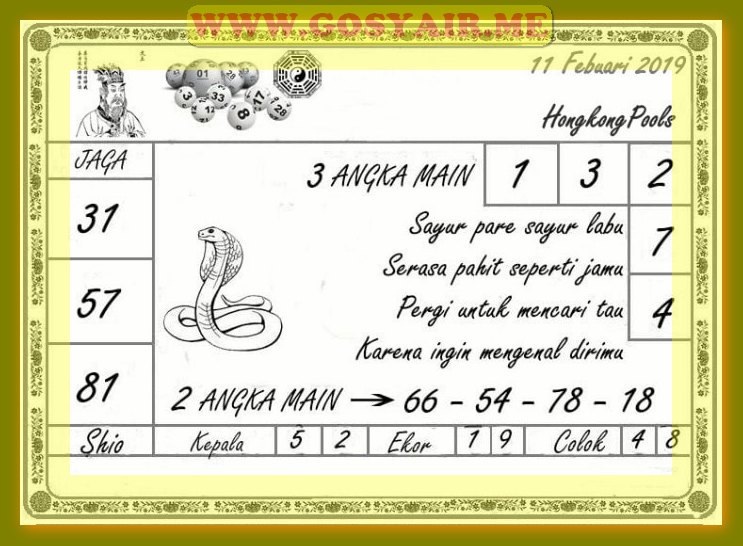 WWW.GOSYAIR.ME
11 Febuari 2019
HongkongPools
01
3
33
12
8
17
28
JAGA
31
57
81
3 ANGKA MAIN 1 3 2
7
4
Sayur pare sayur labu
Serasa pahit seperti jamu
Pergi untuk mencari tau
Karena ingin mengenal dirimu
2 ANGKA MAIN → 66 - 54 - 78 - 18
Shio Kepala 5 2 Ekor 1 9 Colok 4 8